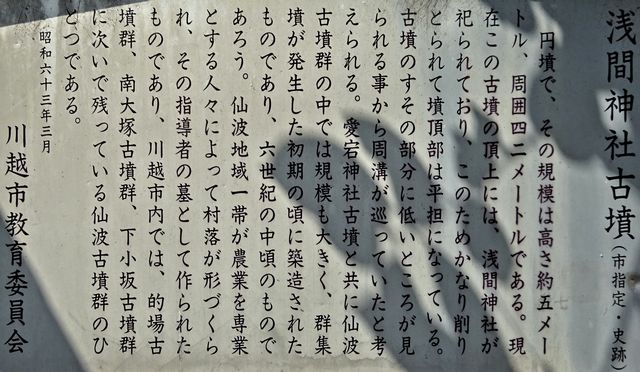 浅間神社古墳（市指定・史跡）
円墳で、その規模は高さ約五メー
トル、周囲四二メートルである。現
在この古墳の頂上には、浅間神社が
祀られており、このためかなり削り
とられて墳頂部は平担になっている。
古墳のすその部分に低いところが見
られる事から周溝が巡っていたと考
えられる。愛宕神社古墳と共に仙波
古墳群の中では規模も大きく、群集
墳が発生した初期の頃に築造された
ものであり、六世紀の中頃のもので
あろう。仙波地域一帯が農業を専業
とする人々によって村落が形づくら
れ、その指導者の墓として作られた
ものであり、川越市内では、的場古
墳群、南大塚古墳群、下小坂古墳群
に次いで残っている仙波古墳群のひ
とつである。
昭和六十三年三月
川越市教育委員会